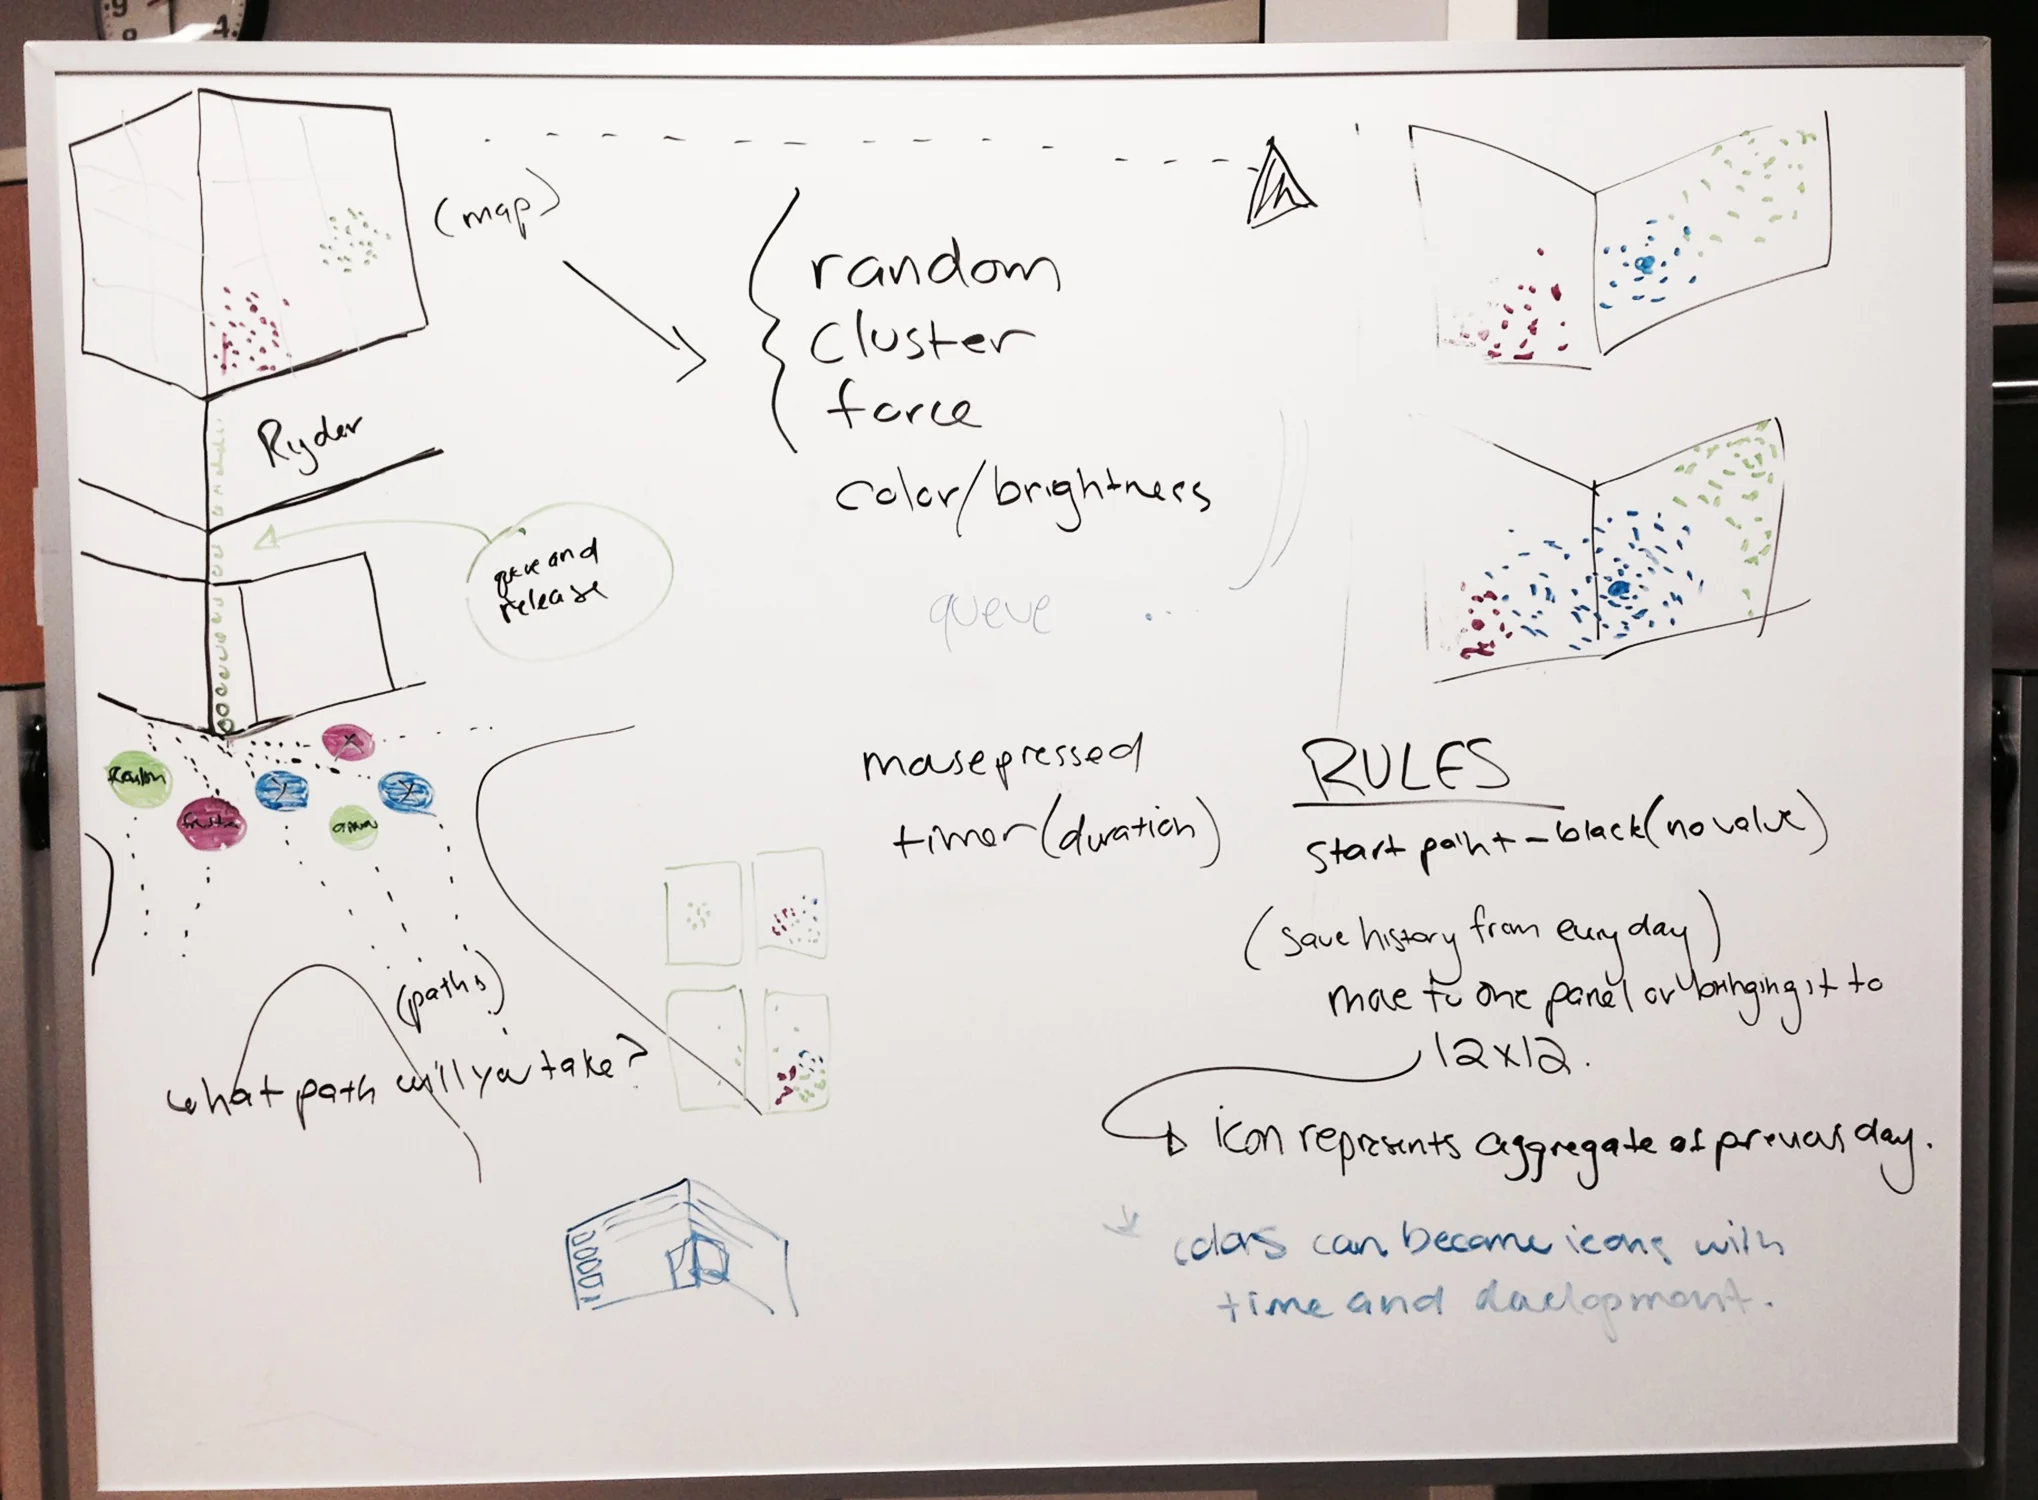 9
8
4
(map)
random
cluster
force
color/brightness
Ryder
queue and
release
queue
X
Y
Y
mousepressed
timer (duration)
RULES
start paint - black (no value)
(save history from every day)
move to one panel or bringing it to
12x12.
icon represents aggregate of previous day.
(paths)
what path will you take?
colors can become icons with
time and development.